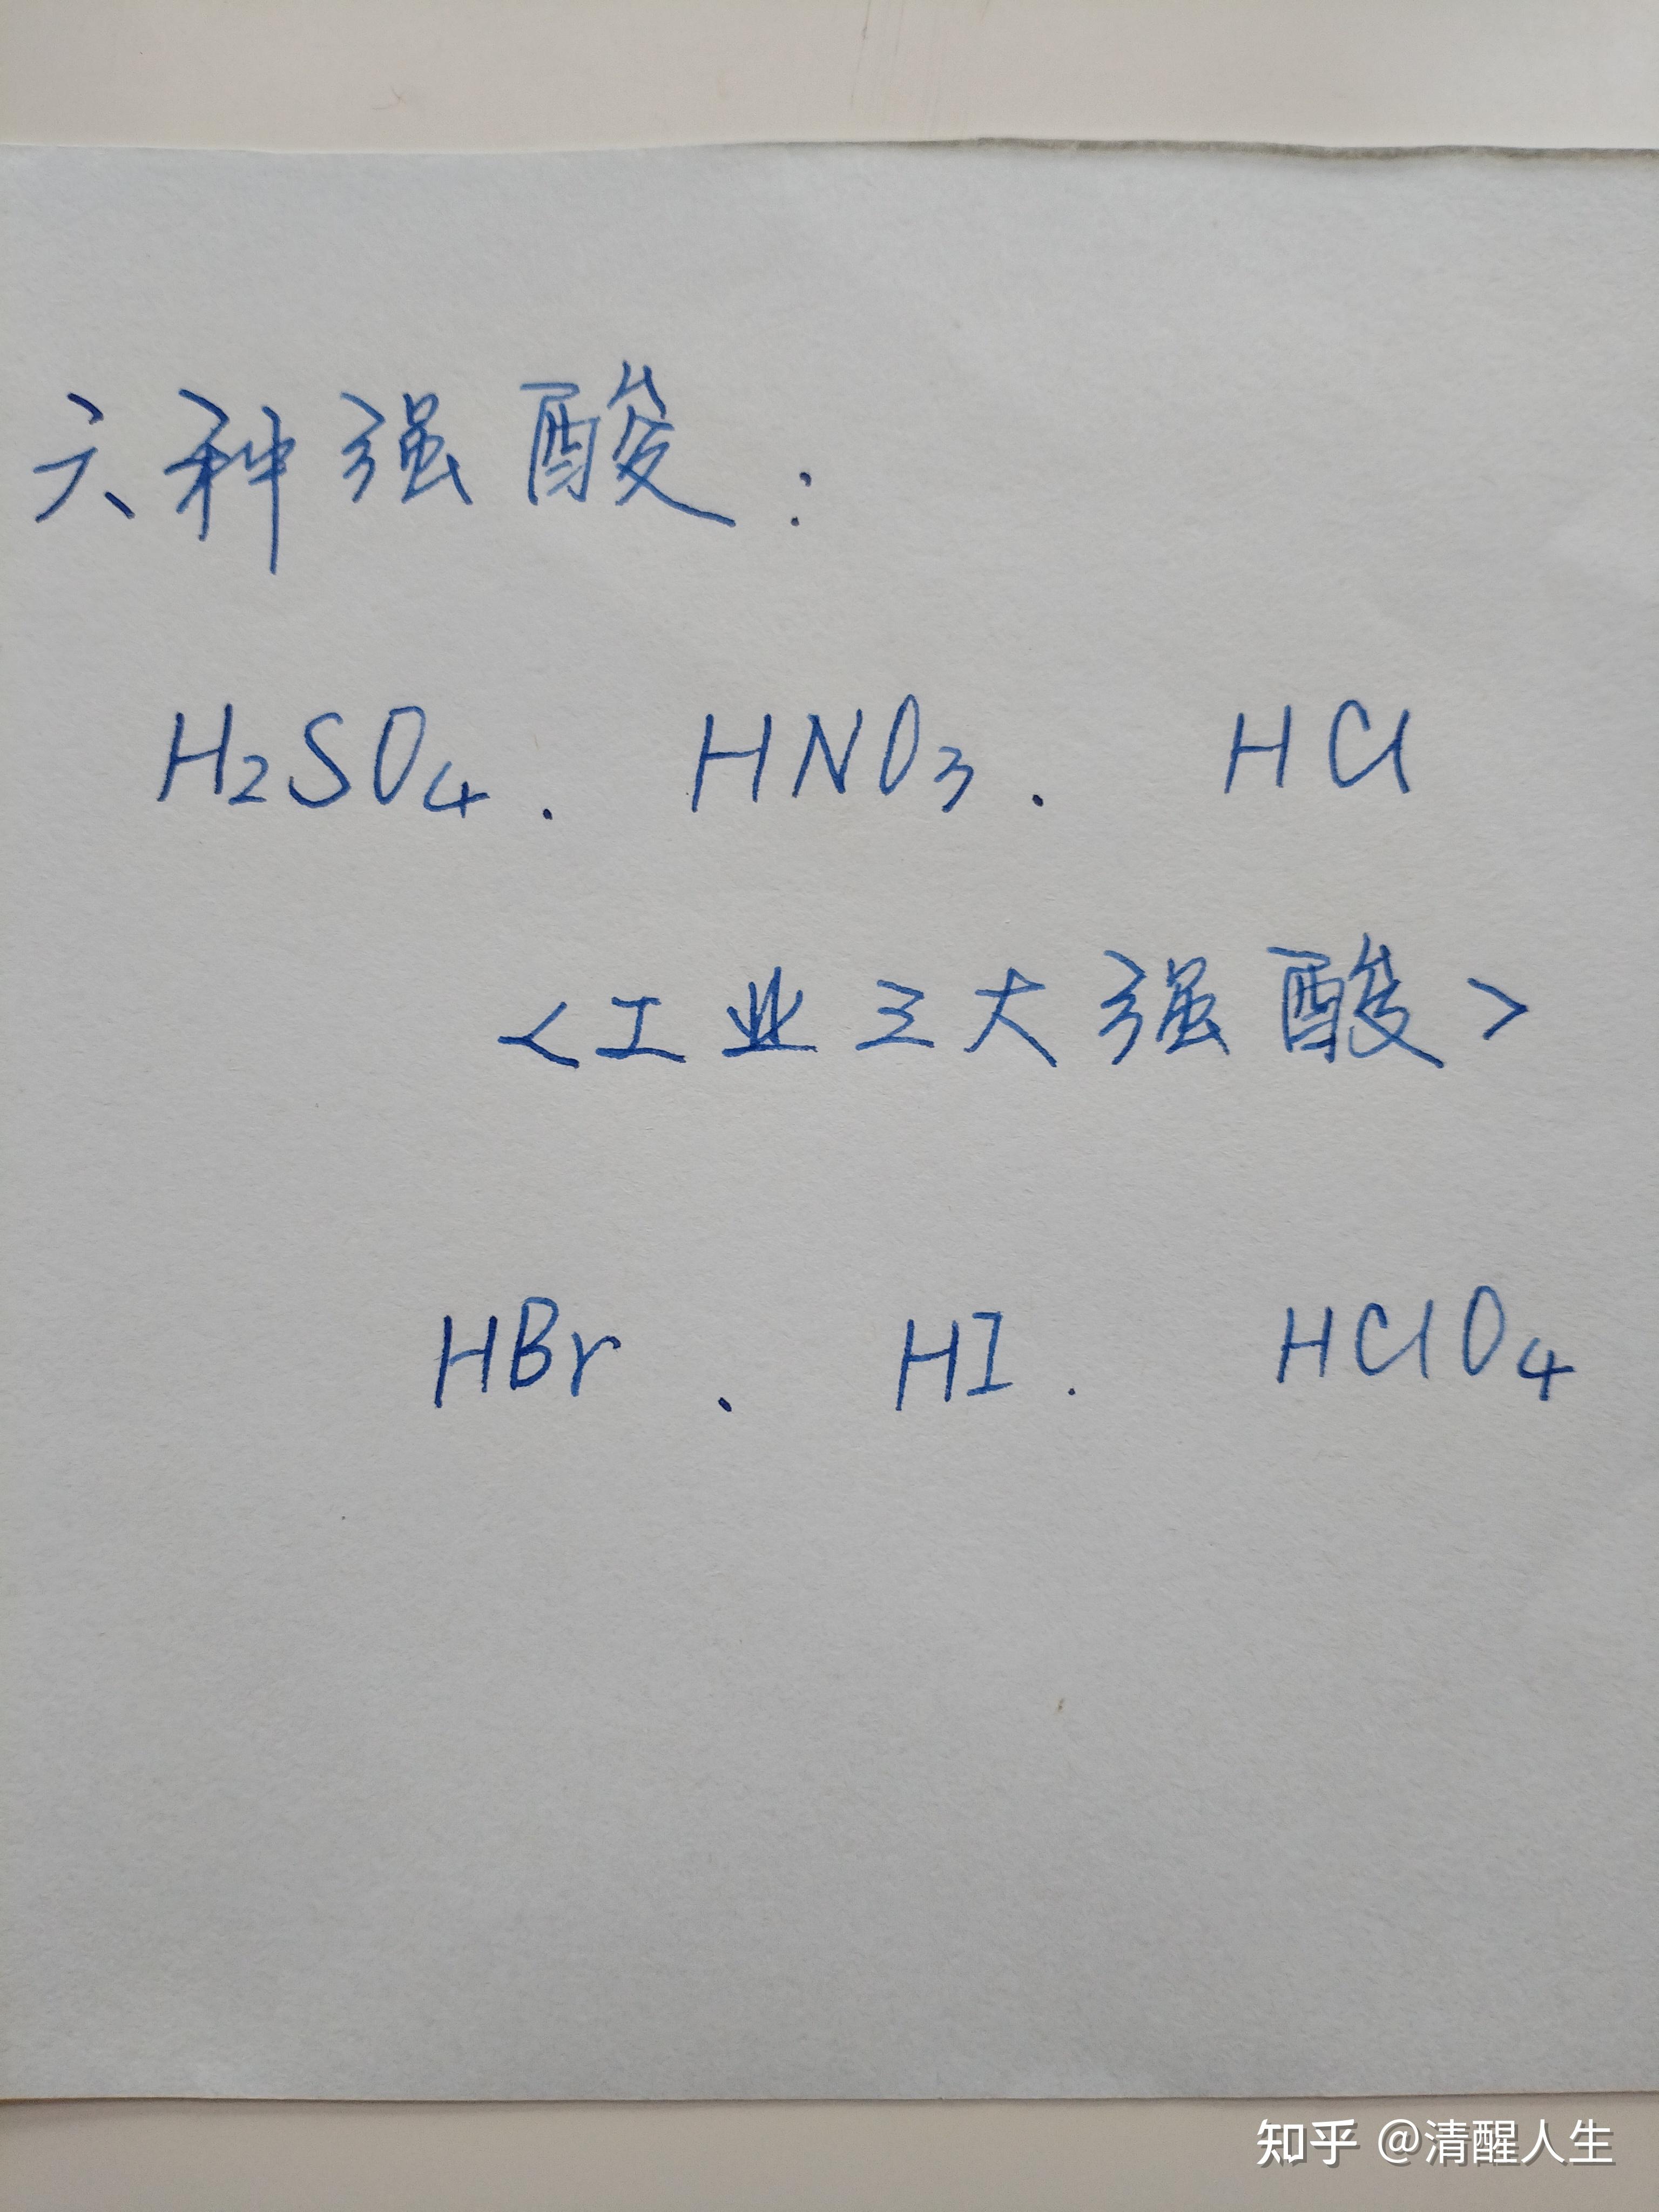 六种强酸：
H₂SO₄. HNO₃. HCl
<工业三大强酸>
HBr . HI . HClO₄
知乎 @清醒人生